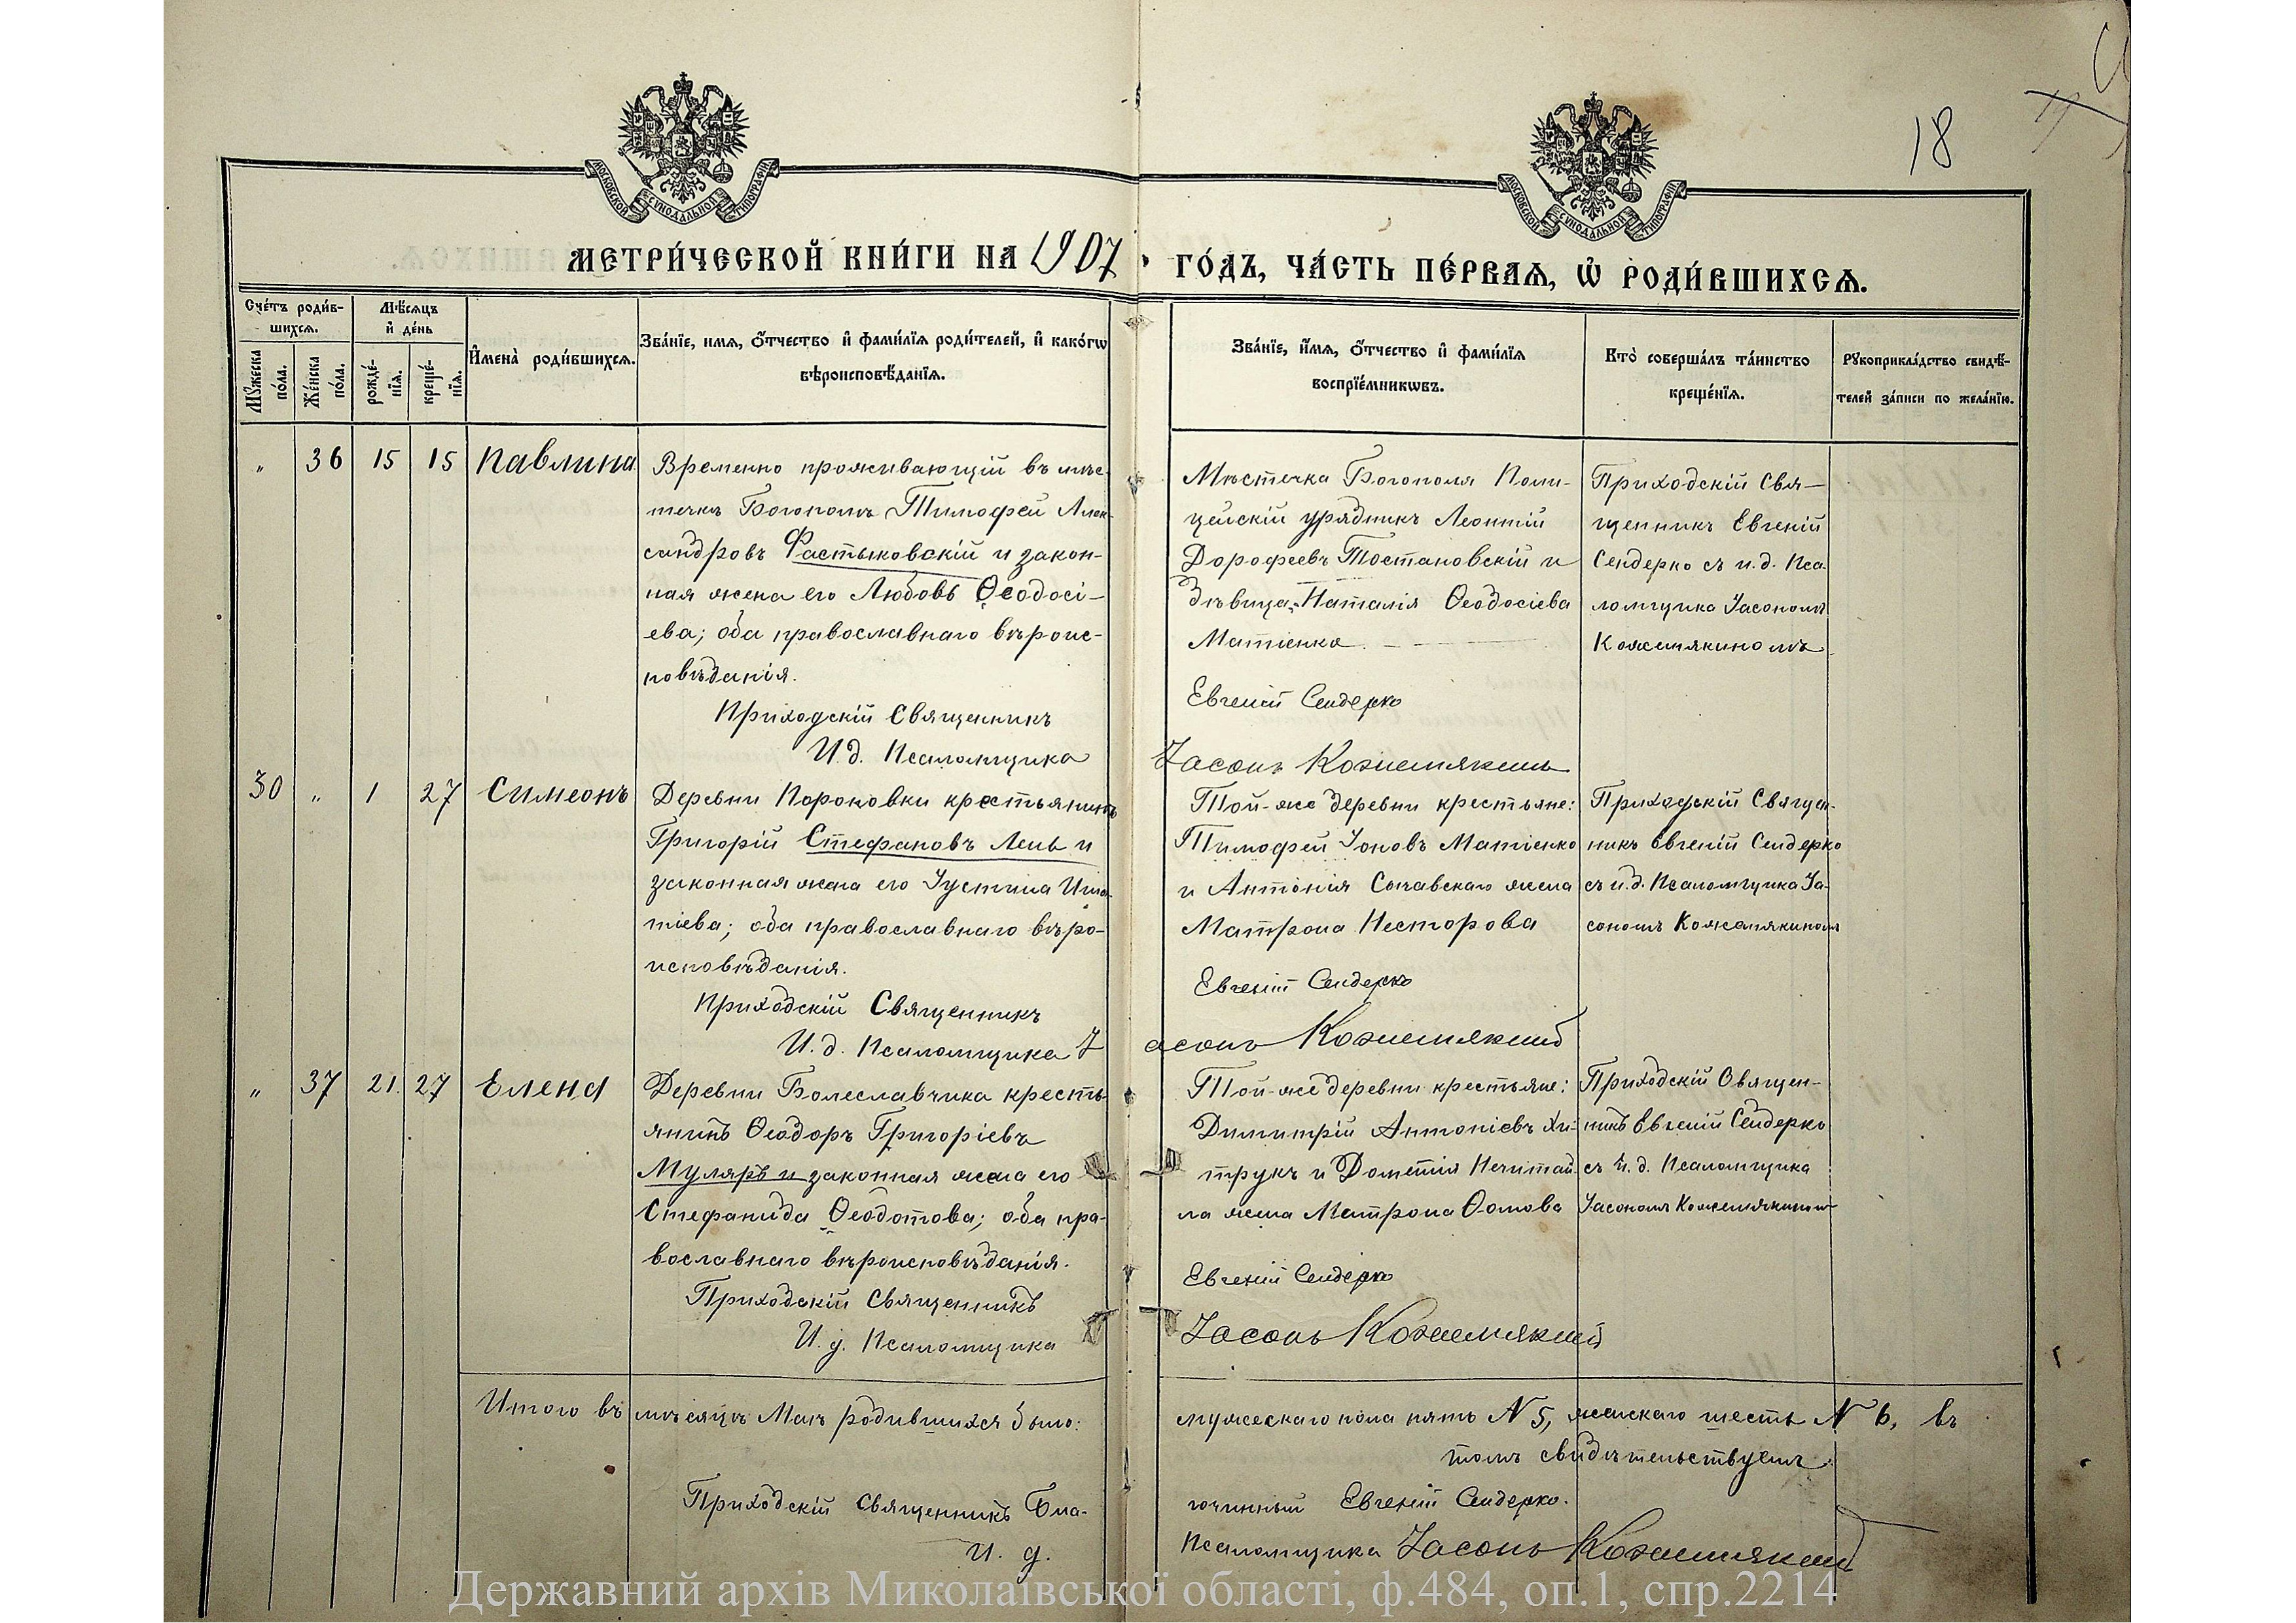 18
МОСКОВСКОЙ СѴНОДАЛЬНОЙ ТИПОГРАФІИ
МОСКОВСКОЙ СѴНОДАЛЬНОЙ ТИПОГРАФІИ
МЕТРИ́ЧЕСКОЙ КНИ́ГИ НА 1907 ГО́ДЪ, ЧА́СТЬ ПЕ́РВАЯ, Ѡ РОДИ́ВШИХСѦ.
Сче́тъ роди́в-
шихсѧ.
Мѣ́сѧцъ
и҆ де́нь
Мꙋ́жеска
по́ла.
Же́нска
по́ла.
рожде́-
нїѧ.
креще́-
нїѧ.
И҆мена̀ роди́вшихсѧ.
Зва́нїе, имѧ, ѻ҆́тчество и҆ фами́лїѧ роди́телей, и҆ како́гѡ
вѣроисповѣ́данїѧ.
Зва́нїе, и҆́мѧ, ѻ҆́тчество и҆ фами́лїѧ
воспрїе́мникѡвъ.
Кто̀ соверша́лъ та́инство
креще́нїѧ.
Рꙋкоприкла́дство свидѣ́-
телей за́писи по жела́нїю.
" 36 15 15 Павлина
Временно проживающій въ мѣс-
течкѣ Богополѣ Тимофей Алек-
сандровъ Фастыковскій и закон-
ная жена его Любовь Ѳеодосі-
ева; оба православнаго вѣроис-
повѣданія.
Приходскій Священникъ
И. д. Псаломщика
Мѣстечка Богополя Поли-
цейскій урядникъ Леонтій
Дорофеевъ Тостановскій и
дѣвица Наталія Ѳеодосіева
Матіенко.
Евгеній Сендерко
Іасонъ Кожемякинъ
Приходскій Свя-
щенникъ Евгеній
Сендерко съ и. д. Пса-
ломщика Іасономъ
Кожемякиномъ
30 " 1 27 Симеонъ
Деревни Пороковки крестьянинъ
Григорій Стефановъ Лень и
законная жена его Іустина Игна-
тіева; оба православнаго вѣро-
исповѣданія.
Приходскій Священникъ
И. д. Псаломщика І
Той-же деревни крестьяне:
Тимофей Іоновъ Матіенко
и Антонія Сычавскаго жена
Матрона Несторова
Евгеній Сендерко
асонъ Кожемякинъ
Приходскій Священ-
никъ Евгеній Сендерко
съ и. д. Псаломщика Іа-
сономъ Кожемякиномъ
" 37 21. 27 Елена
Деревни Болеславчика кресть-
янинъ Ѳеодоръ Григоріевъ
Муляръ и законная жена его
Стефанида Ѳеодотова; оба пра-
вославнаго вѣроисповѣданія.
Приходскій Священникъ
И. д. Псаломщика
Той-же деревни крестьяне:
Димитрій Антоніевъ Хи-
трукъ и Дометія Нечитай-
ла жена Матрона Ѳомова
Евгеній Сендерко
Іасонъ Кожемякинъ
Приходскій Священ-
никъ Евгеній Сендерко
съ и. д. Псаломщика
Іасономъ Кожемякиномъ
Итого въ мѣсяцѣ Маѣ родившихся было: мужескаго пола пять N 5, женскаго шесть N 6, въ
томъ свидѣтельствуемъ
Приходскій Священникъ Бла-гочинный Евгеній Сендерко.
И. д. Псаломщика Іасонъ Кожемякинъ
Державний архів Миколаївської області, ф.484, оп.1, спр.2214